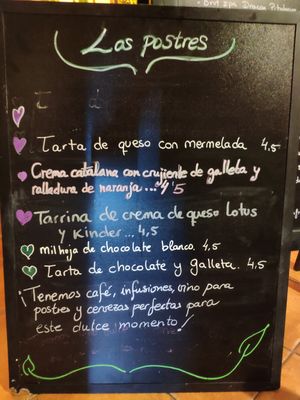 Los postres
Tarta de queso con mermelada 4,5
Crema catalana con crujiente de galleta y
ralladura de naranja ... 4'5
Tarrina de crema de queso Lotus
y Kinder ... 4,5
milhoja de chocolate blanco. 4,5
Tarta de chocolate y galleta. 4,5
¡Tenemos café, infusiones, vino para
postres y cervezas perfectas para
este dulce momento!